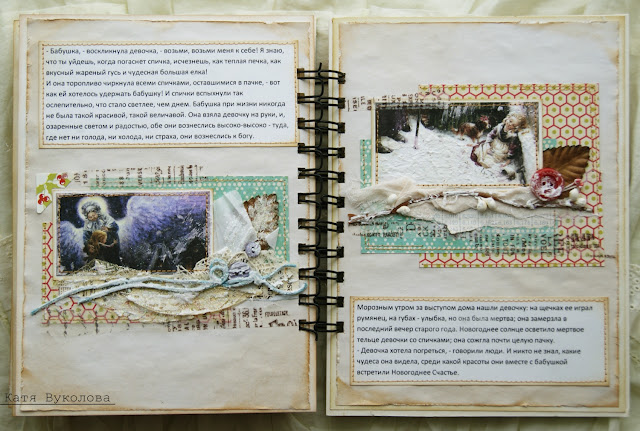 - Бабушка, - воскликнула девочка, - возьми, возьми меня к себе! Я знаю,
что ты уйдешь, когда погаснет спичка, исчезнешь, как теплая печка, как
вкусный жареный гусь и чудесная большая елка!
И она торопливо чиркнула всеми спичками, оставшимися в пачке, - вот
как ей хотелось удержать бабушку! И спички вспыхнули так
ослепительно, что стало светлее, чем днем. Бабушка при жизни никогда
не была такой красивой, такой величавой. Она взяла девочку на руки, и,
озаренные светом и радостью, обе они вознеслись высоко-высоко - туда,
где нет ни голода, ни холода, ни страха, они вознеслись к богу.
Морозным утром за выступом дома нашли девочку: на щечках ее играл
румянец, на губах - улыбка, но она была мертва; она замерзла в
последний вечер старого года. Новогоднее солнце осветило мертвое
тельце девочки со спичками; она сожгла почти целую пачку.
- Девочка хотела погреться, - говорили люди. И никто не знал, какие
чудеса она видела, среди какой красоты они вместе с бабушкой
встретили Новогоднее Счастье.
Катя Вуколова